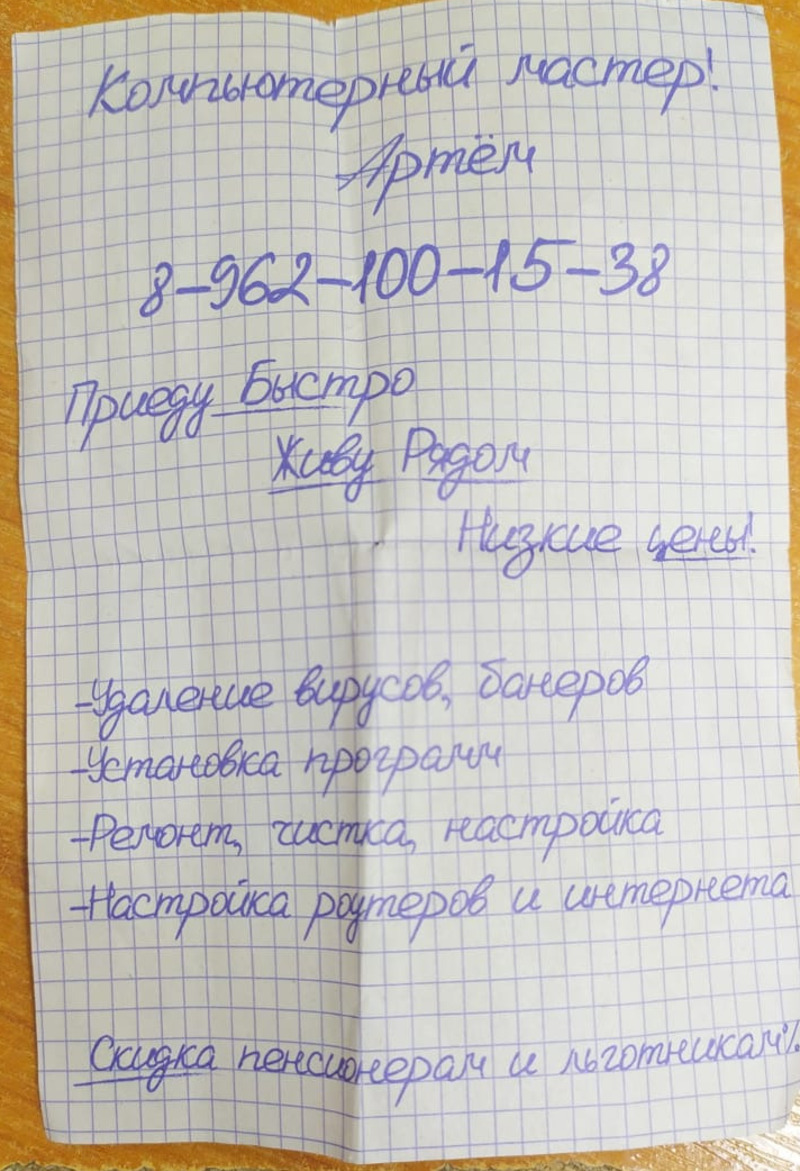 Компьютерный мастер!
Артём
8-962-100-15-38
Приеду Быстро
Живу Рядом
Низкие цены!
-Удаление вирусов, банеров
-Установка программ
-Ремонт, чистка, настройка
-Настройка роутеров и интернета
Скидка пенсионерам и льготникам%